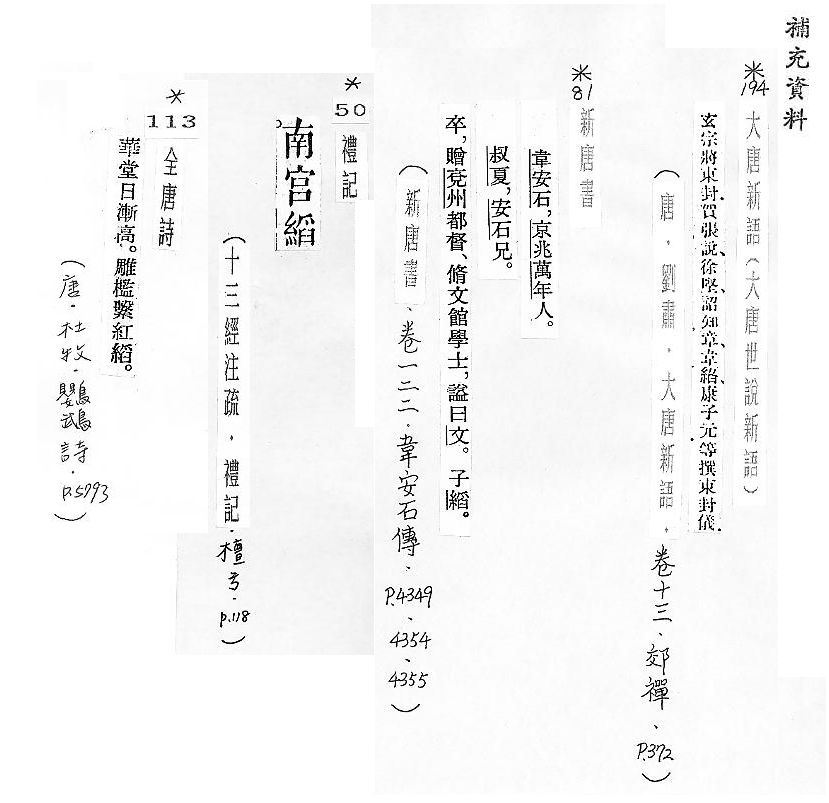 補充資料
*
194
大唐新語（大唐世說新語）
玄宗將東封，賀張說、徐堅、詔知章、韋縚、康子元等撰東封儀。
（唐．劉肅．大唐新語．卷十三、郊禪、P.372）
*
81
新唐書
韋安石，京兆萬年人。
叔夏，安石兄。
卒，贈兗州都督、脩文館學士，謚曰文。子縚。
（新唐書、卷一二二．韋安石傳、P.4349、4354、4355）
*
50
禮記
南宮縚
（十三經注疏．禮記．檀弓．p.118）
*
113
全唐詩
華堂日漸高。雕檻繫紅縚。
（唐．杜牧．鸚鵡詩．p.5993）